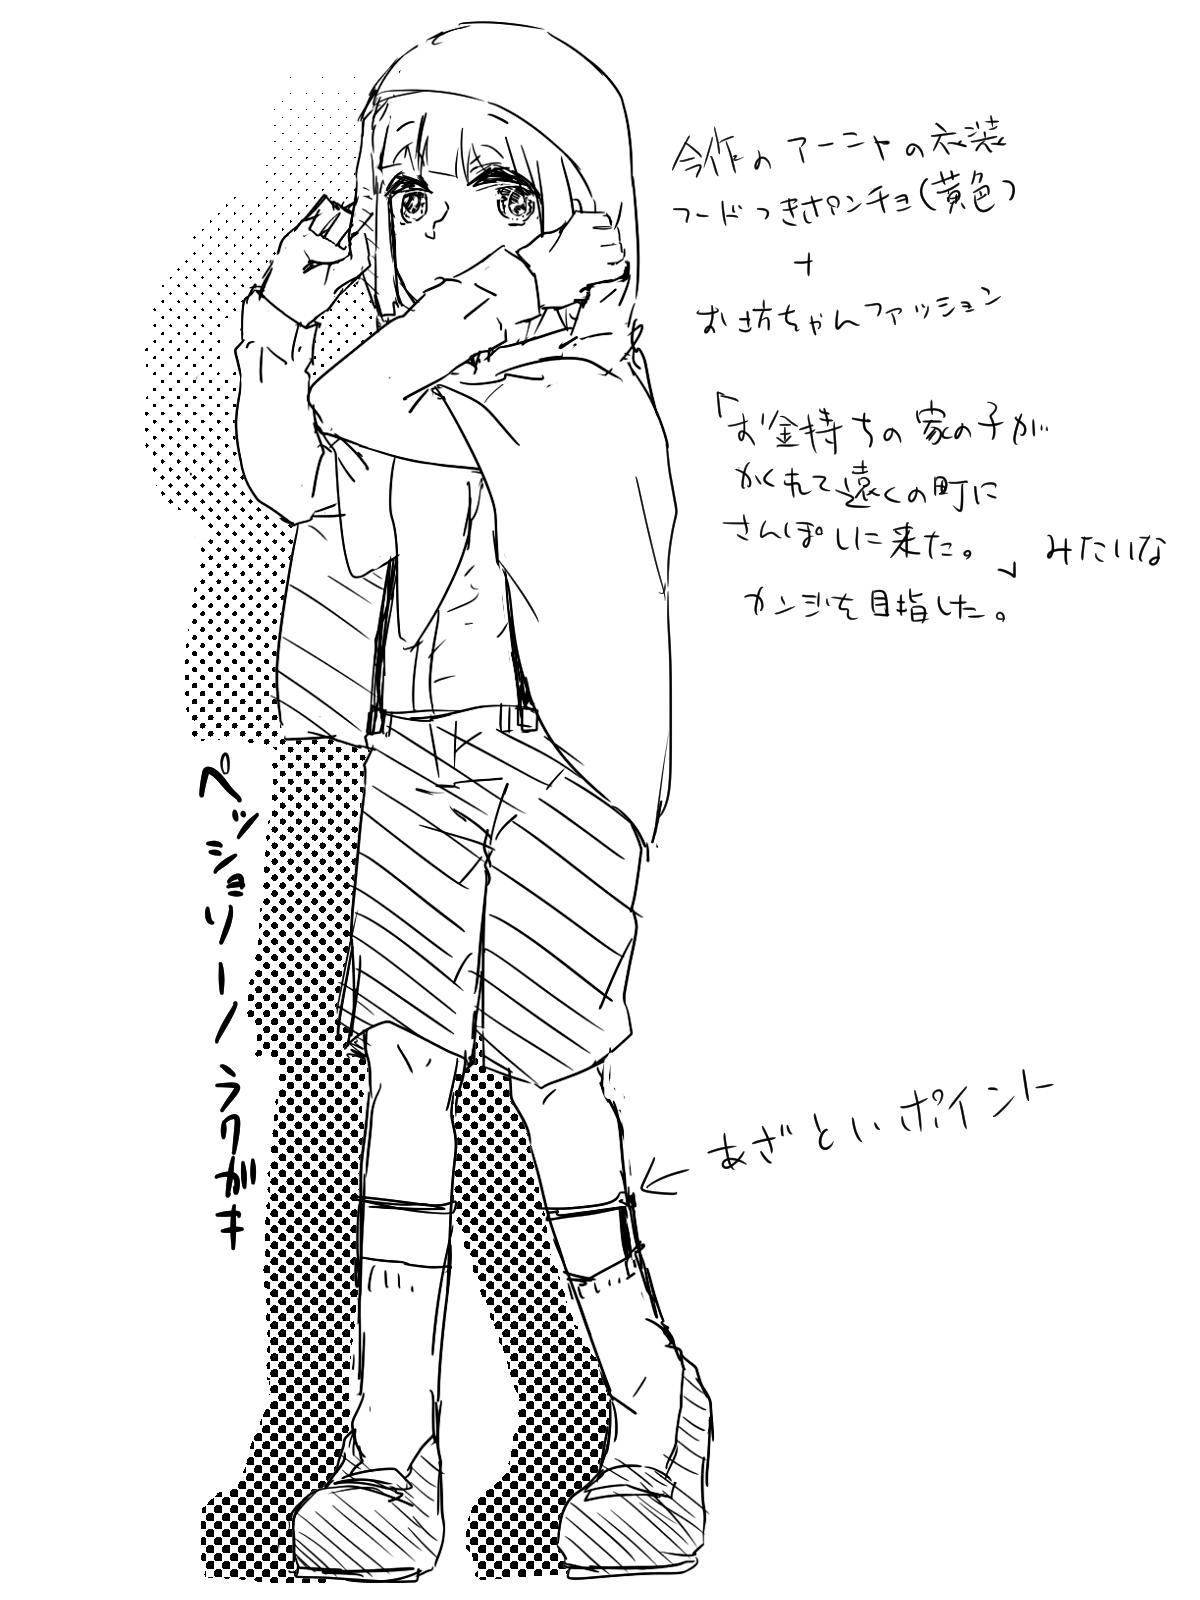 今作の アーニャの衣装
フードつきポンチョ(黄色)
+
お坊ちゃんファッション
「お金持ちの家の子が
かくれて遠くの町に
さんぽしに来た。」みたいな
カンジを目指した。
ペッショリーノラクガキ
← あざといポイント